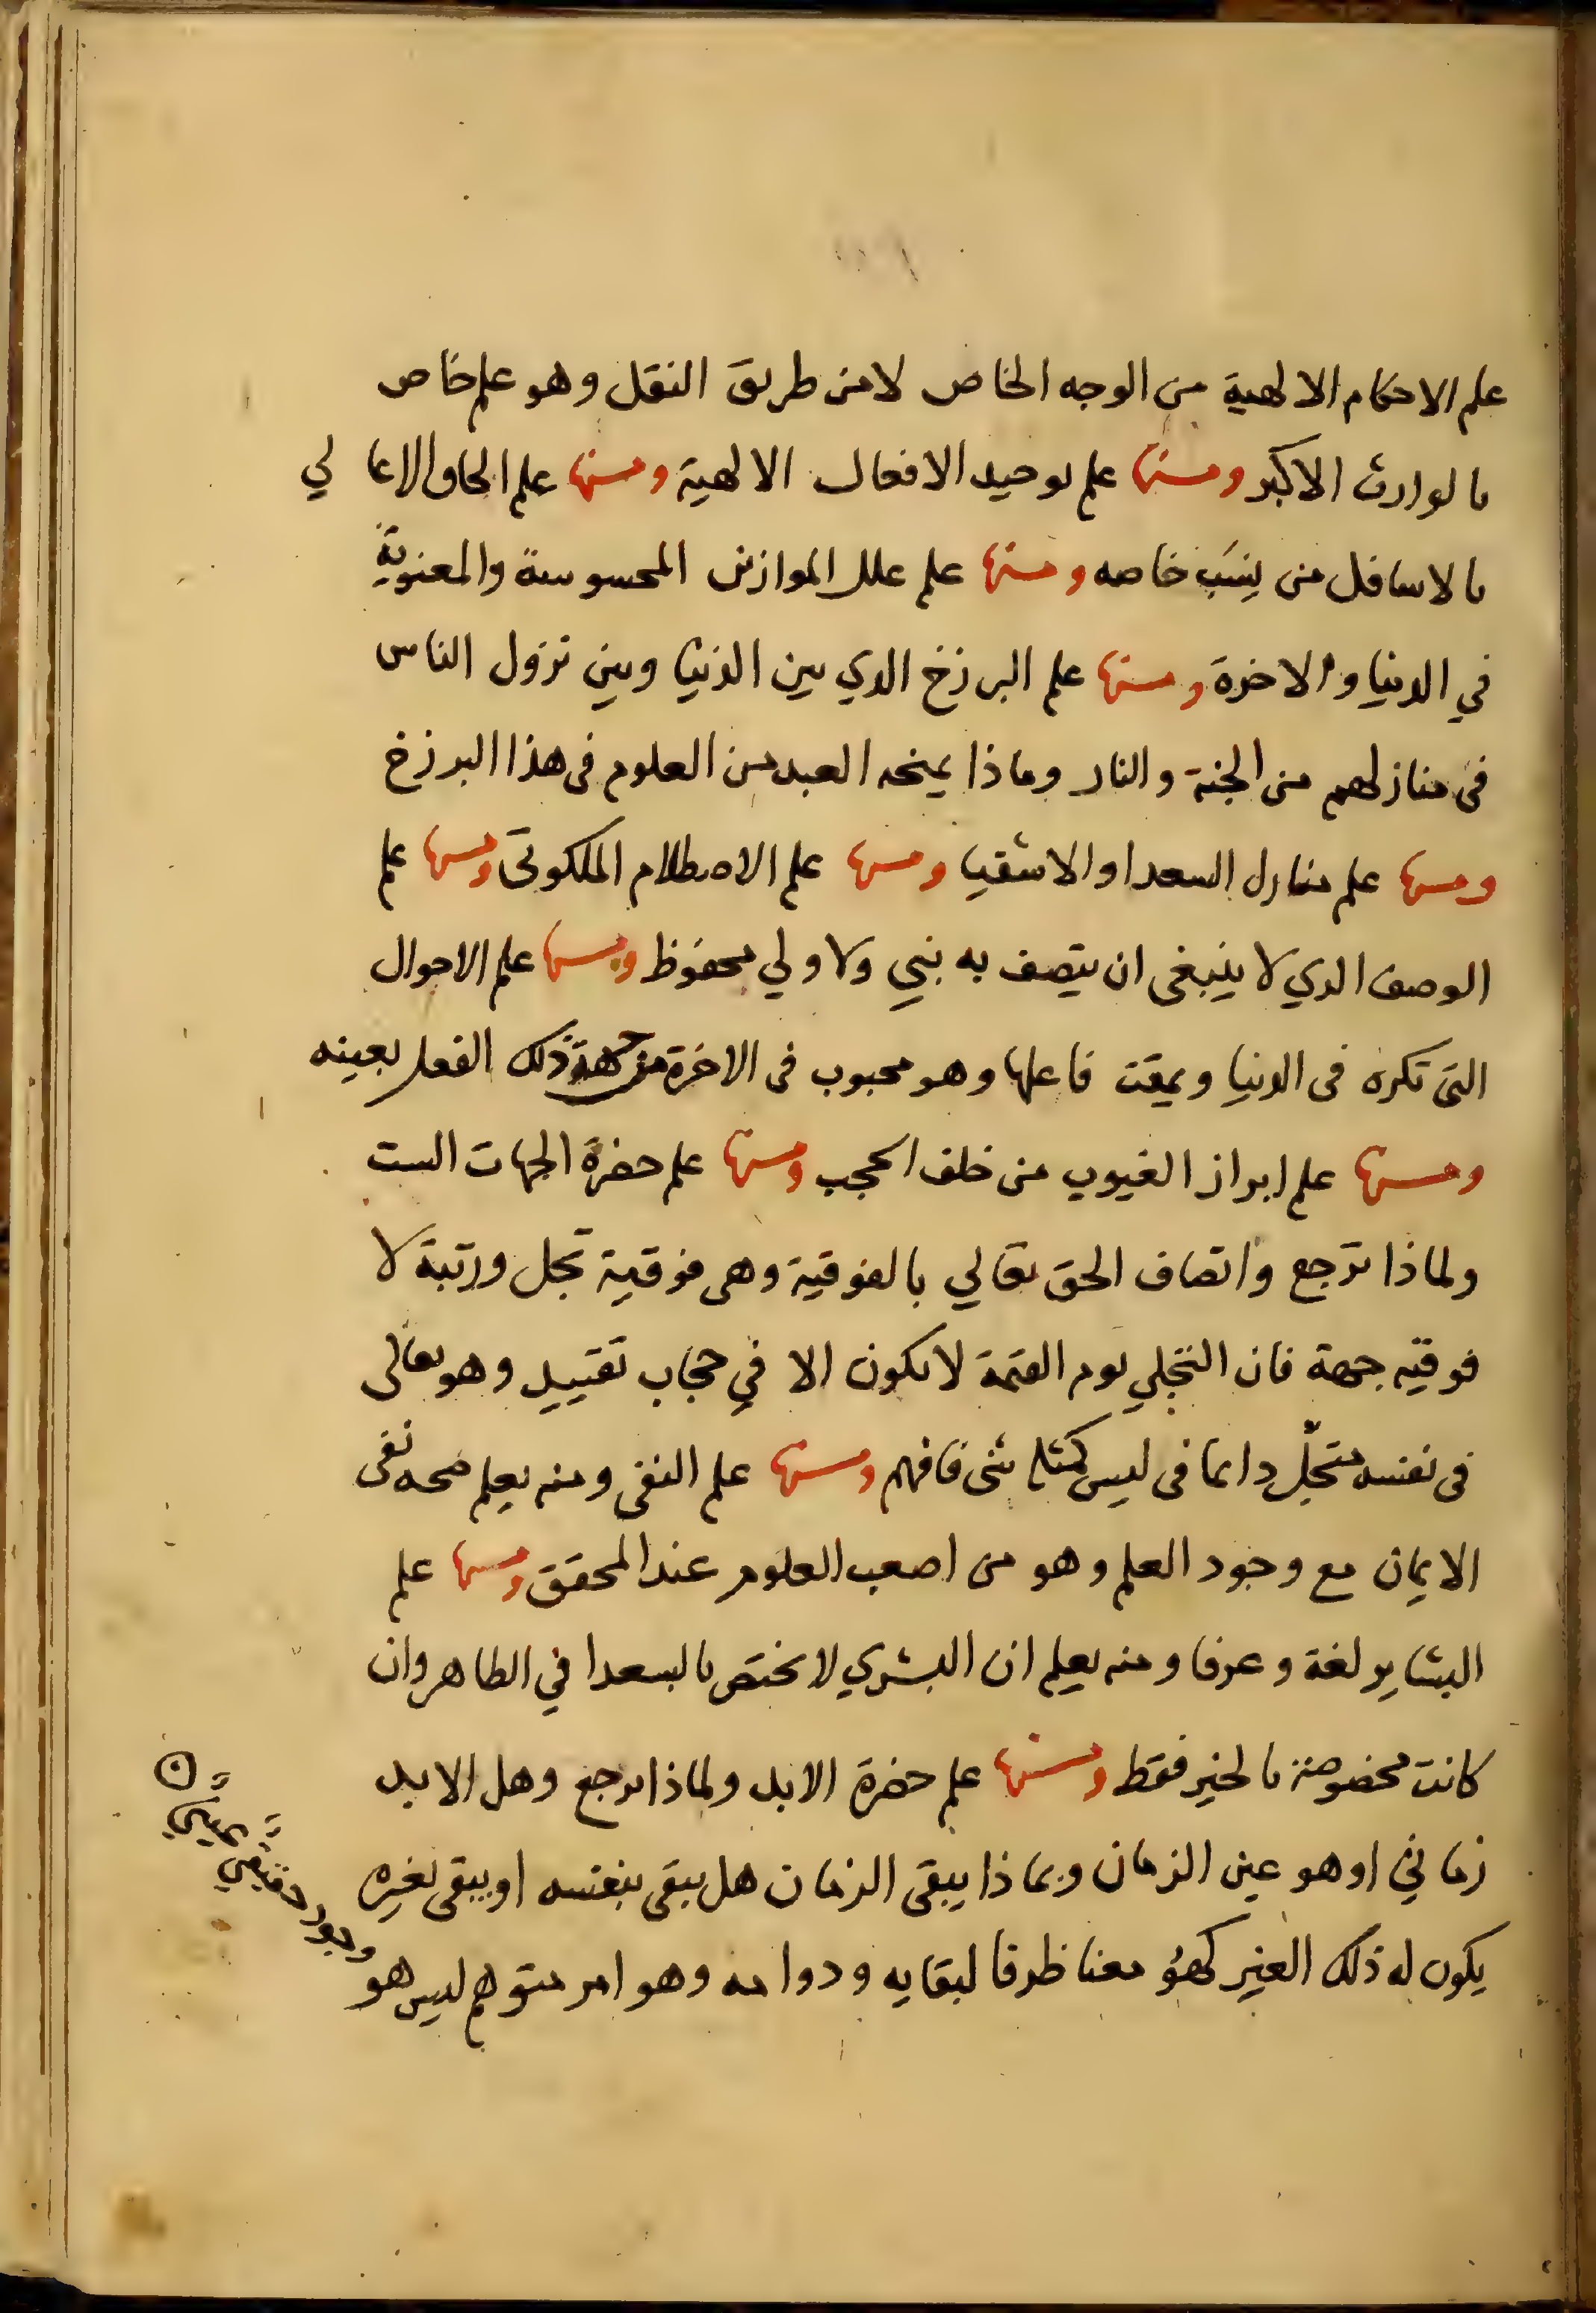 علم الاحكام الالهية من الوجه الخاص لا من طريق النقل وهو علم خاص
بالوارث الاكبر ومنها علم توحيد الافعال الالهية ومنها علم الحاق الاعالي
بالاسافل من نِسَب خاصه ومنها علم علل الموازين المحسوسة والمعنوية
في الدنيا والاخرة ومنها علم البرزخ الدي بين الدنيا وبين نزول الناس
في منازلهم من الجنة والنار وماذا يمنحه العبد من العلوم في هذا البرزخ
ومنها علم منازل السعدا والاشقيا ومنها علم الاصطلام الملكوتي ومنها علم
الوصف الدي لا ينبغي ان يتصف به نبي ولا ولي محفوظ ومنها علم الاحوال
التي تكره في الدنيا ويمقت فاعلها وهو محبوب في الاخرة من جهة ذلك الفعل بعينه
ومنها علم ابراز الغيوب من خلف الحجب ومنها علم حضرة الجهات الست
ولماذا ترجع واتصاف الحق تعالي بالفوقية وهي فوقية تجل ورتبة لا
فوقيه جهة فان التجلي يوم القيمة لا يكون الا في حجاب تقييد وهو تعالى
في نفسه متجلّ دايما في ليس كمثله شي فافهم ومنها علم النفي ومنه يعلم صحه نفي
الايمان مع وجود العلم وهو من اصعب العلوم عند المحقق ومنها علم
البشاير لغة وعرفا ومنه يعلم ان البشري لا تختص بالسعدا في الظاهر وان
كانت مخصوصة بالخير فقط ومنها علم حضرة الابد ولماذا ترجع وهل الابد
زماني او هو عين الزمان وبماذا يبقى الزمان هل يبقى بنفسه او يبقى بغيره
يكون له ذلك الغير كهو معنا ظرفا لبقايه ودوامه وهو امر متوهم ليس هو
وجود حقيقي عيني